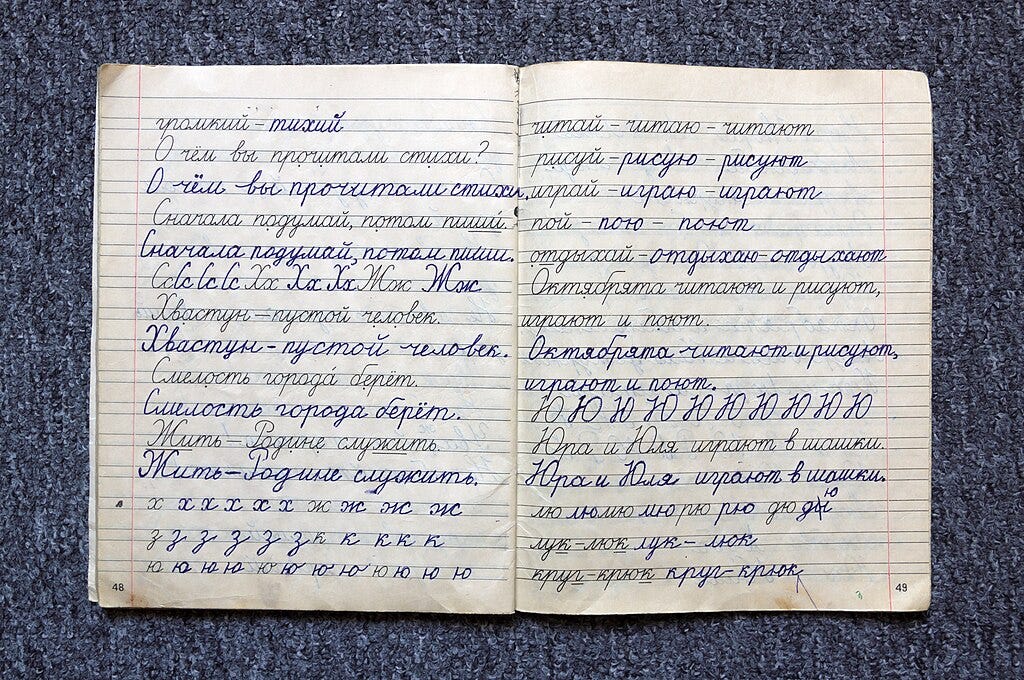 громкий – тихий
О чём вы прочитали стихи?
О чём вы прочитали стихи.
Сначала подумай, потом пиши.
Сначала подумай, потом пиши.
Сс С С С Хх Хх Хх Жж Жж
Хвастун – пустой человек.
Хвастун – пустой человек.
Смелость города́ берёт.
Смелость города берёт.
Жить – Родине служить.
Жить – Родине служить.
х х х х х х ж ж ж ж
з з з з з з к к к к к
ю ю ю ю ю ю ю ю ю ю ю ю
48
читай – читаю – читают
рисуй – рисую – рисуют
играй – играю – играют
пой – пою – поют
отдыхай – отдыхаю – отдыхают
Октябрята читают и рисуют,
играют и поют.
Октябрята читают и рисуют,
играют и поют.
Ю Ю Ю Ю Ю Ю Ю Ю Ю Ю
Юра и Юля играют в шашки.
Юра и Юля играют в шашки.
лю лю мю мю рю рю дю дю
лук – люк лук – люк
круг – крюк круг – крюк
49